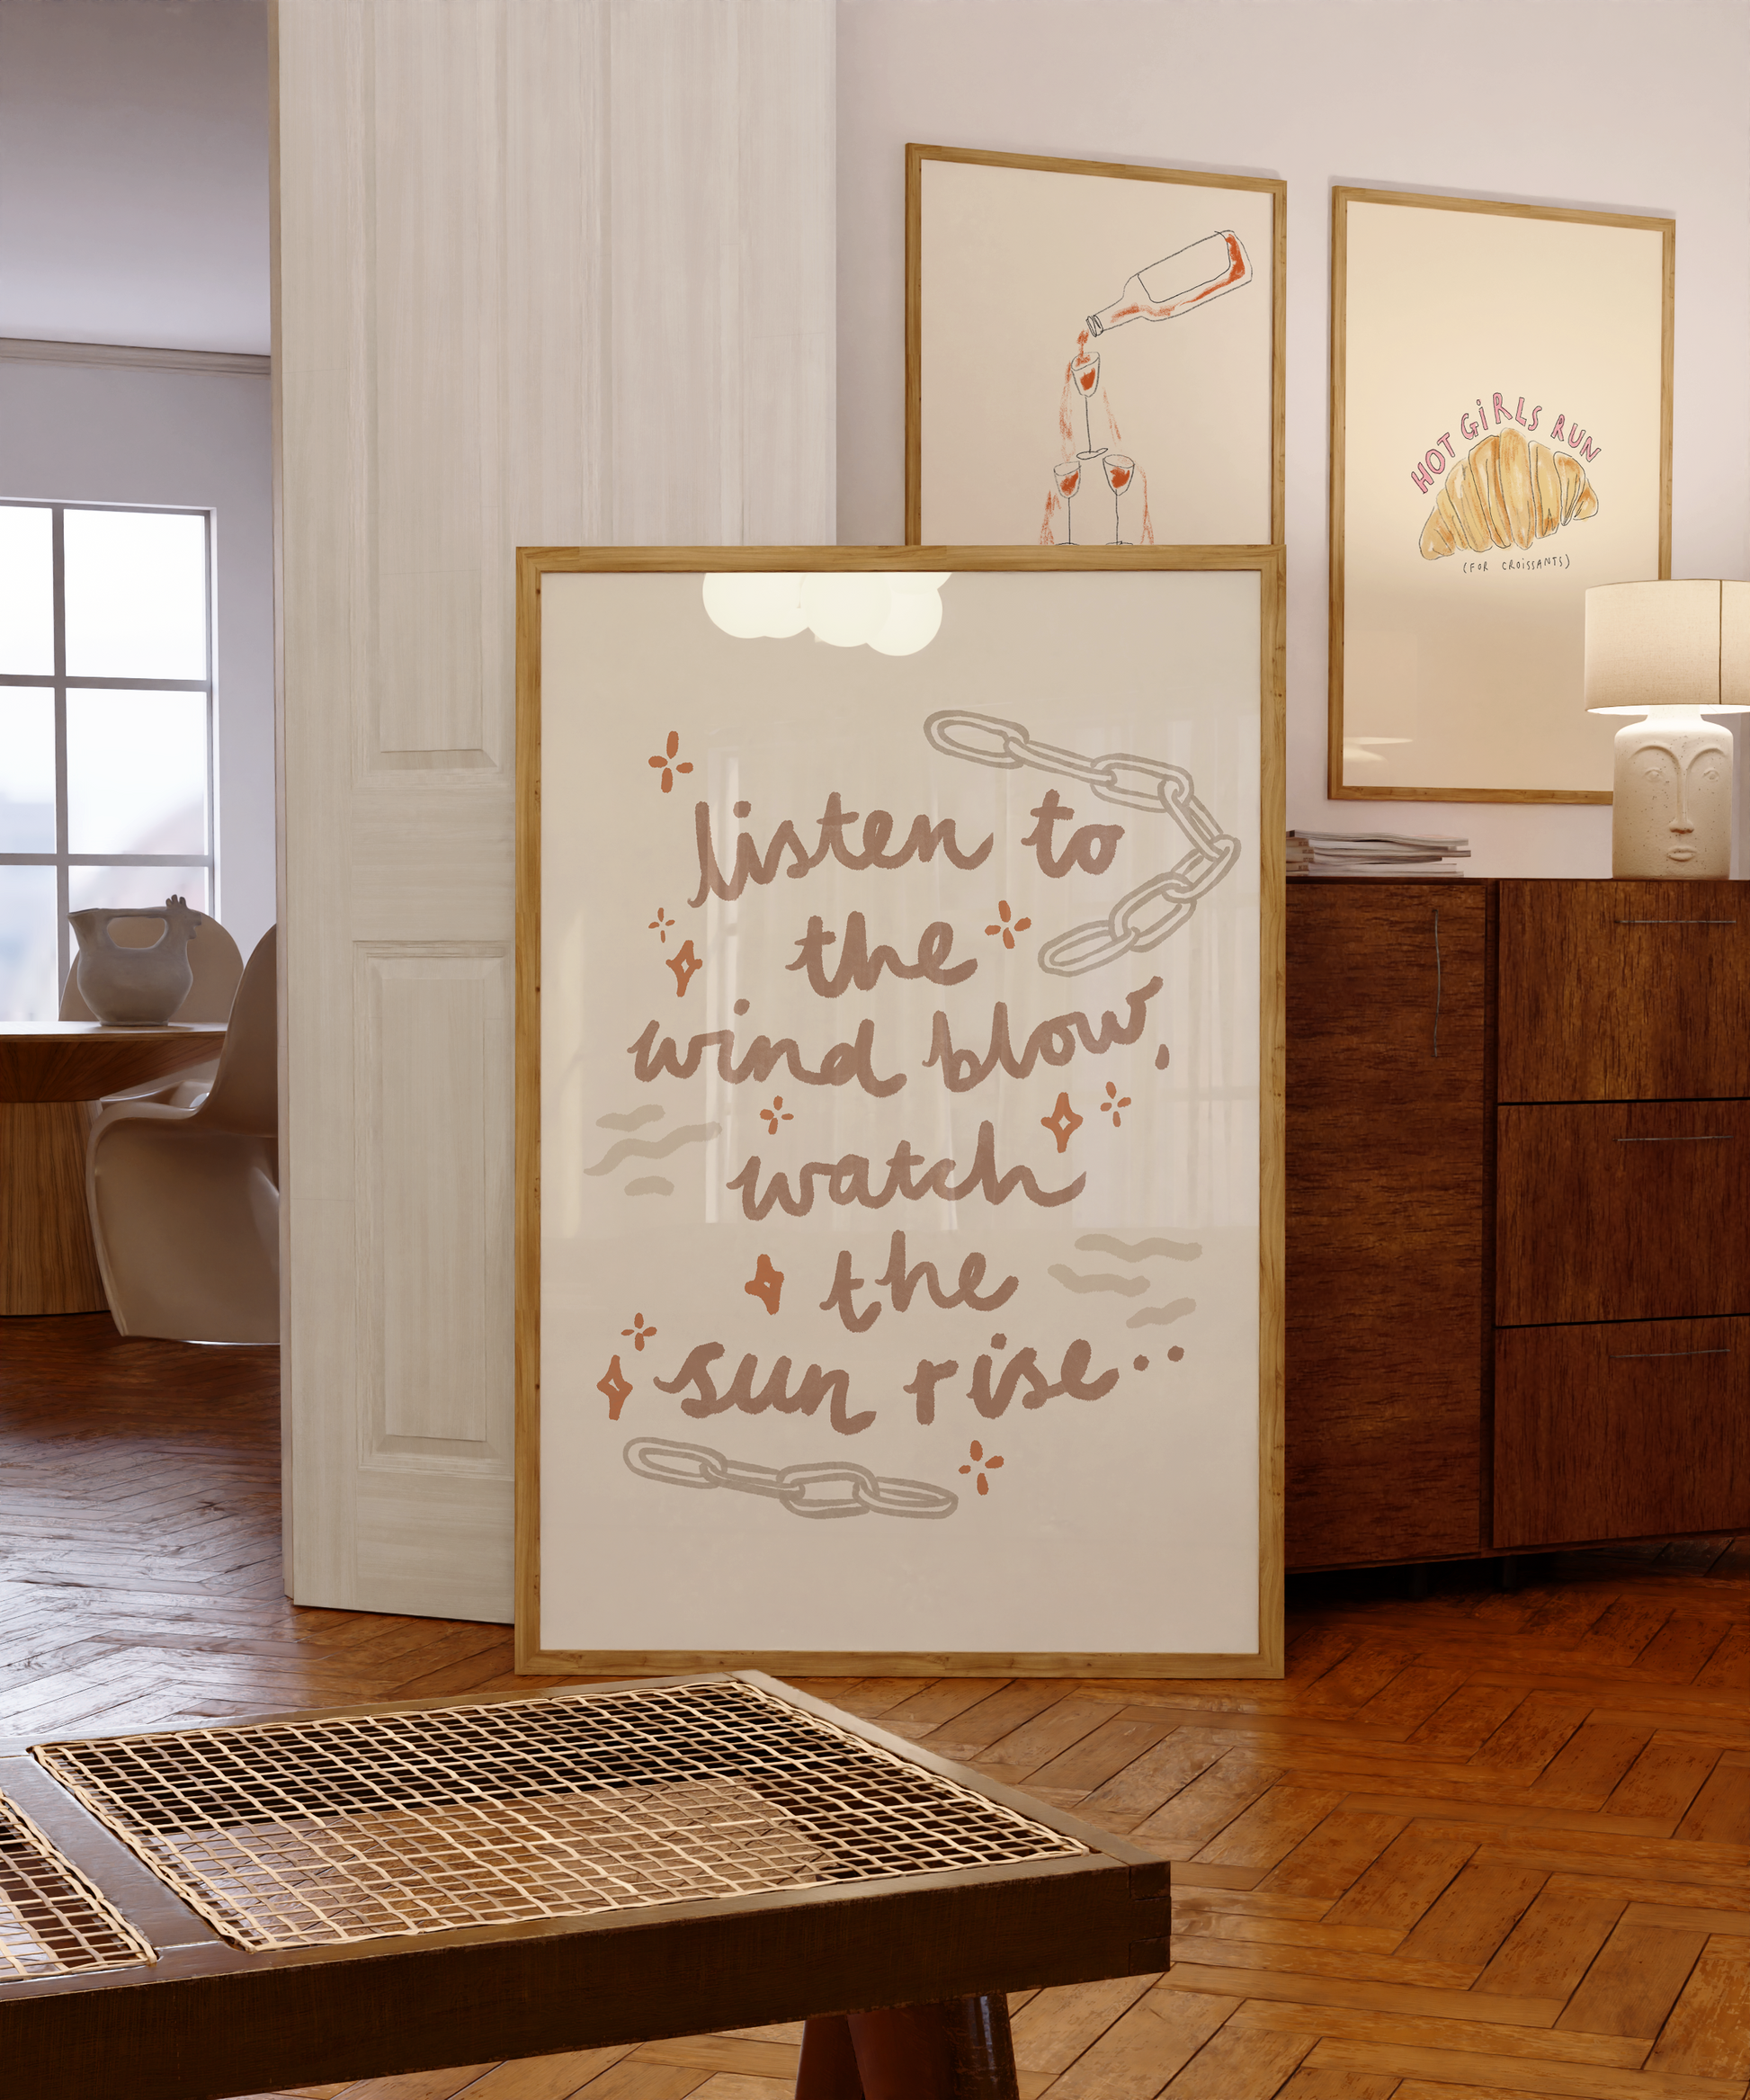 HOT GiRLS RUN
(FOR CROiSSANTS)
listen to
the
wind blow,
watch
the
sun rise..